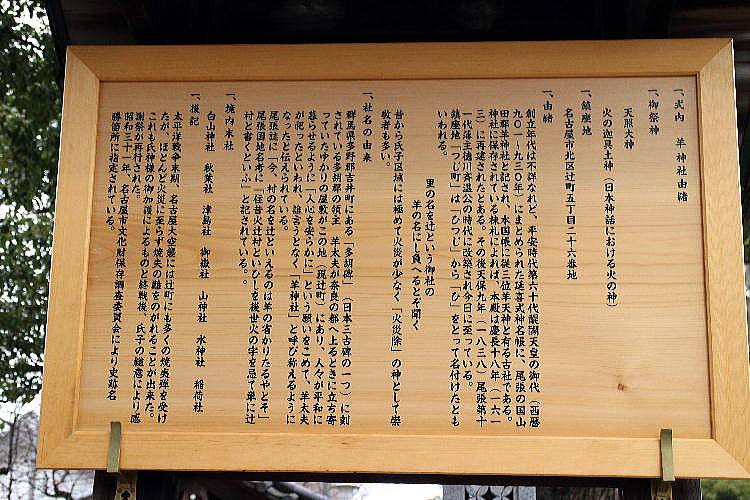 一、式内 羊神社由緒
一、御祭神
天照大神
火の迦具土神（日本神話における火の神）
一、鎮座地
名古屋市北区辻町五丁目二十六番地
一、由緒
創立年代は不詳なれど、平安時代第六十代醍醐天皇の御代（西暦
九〇一～九三〇年）にまとめられた延喜式神名帳に、尾張の国山
田郡羊神社と記され、本国帳に従三位羊天神と有る古社である。
神社に保存されている棟札によれば、本殿は慶長十八年（一六一
三）に再建されたとある。その後天保九年（一八三八）尾張第十
一代藩主徳川斉温公の時代に改築され今日に至っている。
鎮座地「つじ町」は「ひつじ」から「ひ」をとって名付けたとも
いわれる。
里の名を辻という御社の
羊の名にし負へるとぞ聞く
昔から氏子区域には極めて火災が少なく「火災除」の神として崇
敬者も多い。
一、社名の由来
群馬県多野郡吉井町にある「多胡碑」（日本三古碑の一つ）に刻
されている多胡郡の領主、羊太夫が奈良の都へ上るときに立ち寄
っていたゆかりの屋敷がこの地（現辻町）にあり、人々が平和に
暮らせるように「人心を安らかに」という願いをこめて、羊太夫
が祀ったといわれ、誰言うとなく「羊神社」と呼び称えるように
なったと伝えられている。
尾張誌に「今、村の名を辻といえるのは羊の省かりたるやとぞ」
尾張国地名考に「往昔火辻村といひしを後世火の字を忌て単に辻
村と書くといふ」と記されている。
一、境内末社
白山神社 秋葉社 津島社 御嶽社 山神社 水神社 稲荷社
一、後記
太平洋戦争末期、名古屋大空襲には辻町にも多くの焼夷弾を受け
たが、ほとんど火災に至らず焼失の難をのがれることが出来た。
これも氏神様の御加護によるものと終戦後、氏子の総意により感
謝祭が再行された。
昭和三十一年、名古屋市文化財保存調査委員会により史跡名
勝箇所に指定されている。